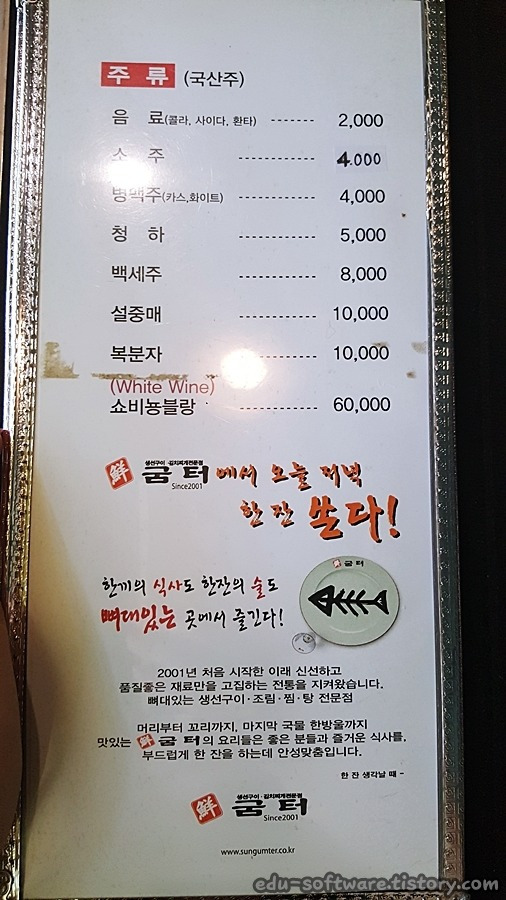 주 류 (국산주)
음 료(콜라, 사이다, 환타) ------- 2,000
소 주 ------------ 4.000
병맥주(카스,화이트) ------------ 4,000
청 하 ------------ 5,000
백세주 ------------ 8,000
설중매 ------------ 10,000
복분자 ------------ 10,000
(White Wine)
쇼비뇽블랑 ------------ 60,000
생선구이·김치찌개전문점
鮮 굼터 에서 오늘 저녁
Since2001
한 잔 쏜다!
鮮 굼터
한끼의 식사도 한잔의 술도
뼈대있는 곳에서 즐긴다!
2001년 처음 시작한 이래 신선하고
품질좋은 재료만을 고집하는 전통을 지켜왔습니다.
뼈대있는 생선구이·조림·찜·탕 전문점
머리부터 꼬리까지, 마지막 국물 한방울까지
맛있는 鮮 굼터의 요리들은 좋은 분들과 즐거운 식사를,
부드럽게 한 잔을 하는데 안성맞춤입니다.
한 잔 생각날 때 -
생선구이·김치찌개전문점
鮮 굼터
Since2001
www.sungumter.co.kr
edu-software.tistory.com